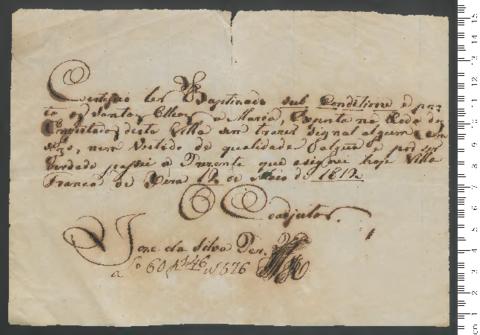 Certifico ter Baptizado sub Conditione e pus
os Santos Oleos a Maria, Exposta na Roda dos
Engeitados desta Villa sem trazer signal algum com
sigo, nem Vestido de qualidade e por ser
verdade passei a Prezente que asignei hoje Villa
Franca de Xira 12 de Maio de 1812
O Coadjutor
Joze da Silva
a fo 60 No 346